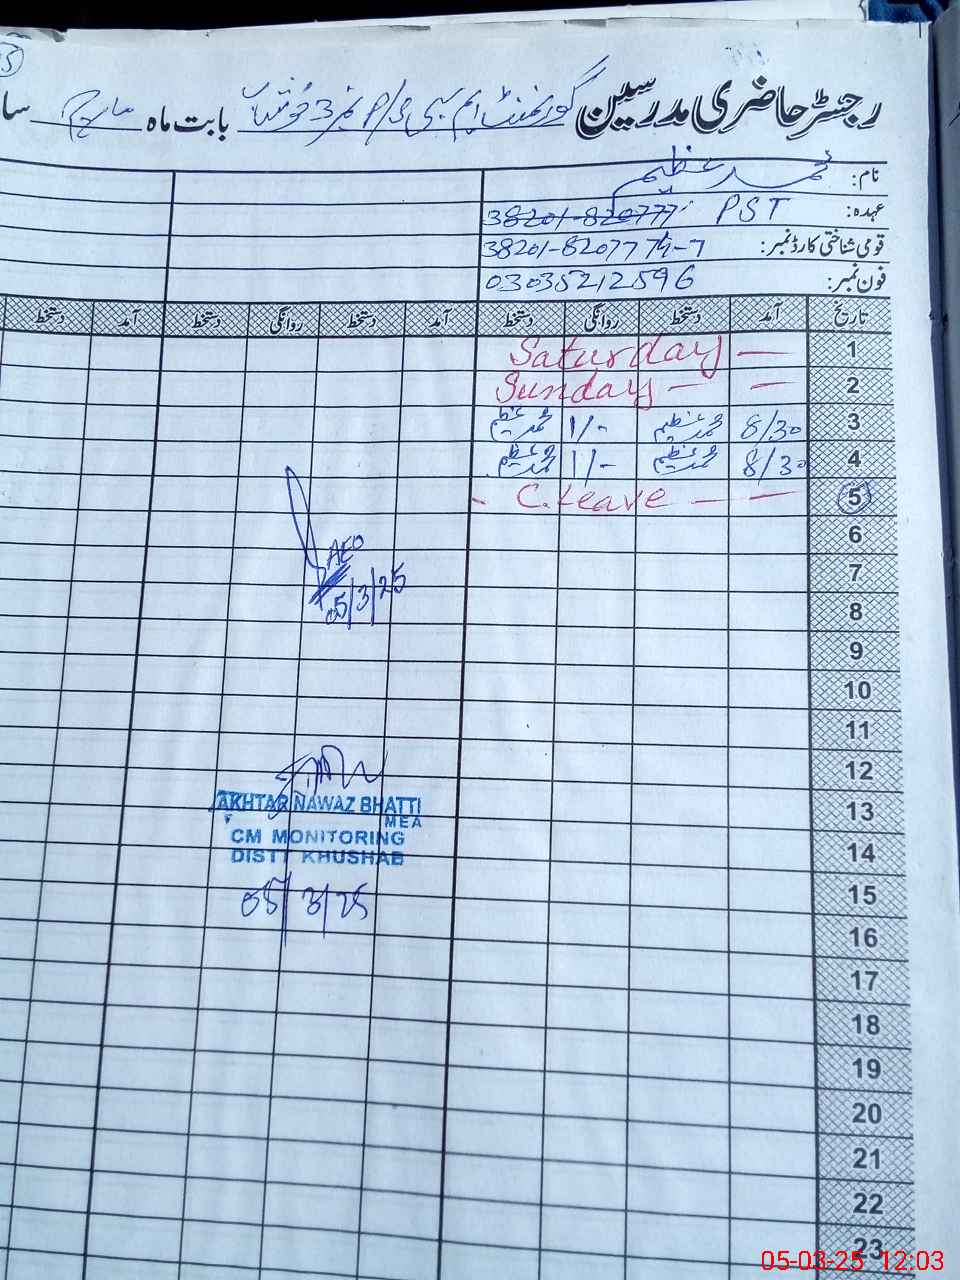 رجسٹر حاضری مدرسین گورنمنٹ ایم سی P/S نمبر 3 خوشاب بابت ماہ مارچ
نام: محمد عظیم
عہدہ: PST 38201-820777
قومی شناختی کارڈ نمبر: 38201-8207774-7
فون نمبر: 03035212596
تاریخ آمد دستخط روانگی دستخط آمد دستخط روانگی دستخط آمد دستخط
1 Saturday —
2 Sunday — —
3 8/30 محمد عظیم 1/- محمد عظیم
4 8/30 محمد عظیم 1/- محمد عظیم
5 - C. Leave — —
6
AEO
7
05/3/25
8
9
10
11
12
13
AKHTAR NAWAZ BHATTI
MEA
CM MONITORING
14
DISTT KHUSHAB
15
05/3/25
16
17
18
19
20
21
22
23
05-03-25 12:03